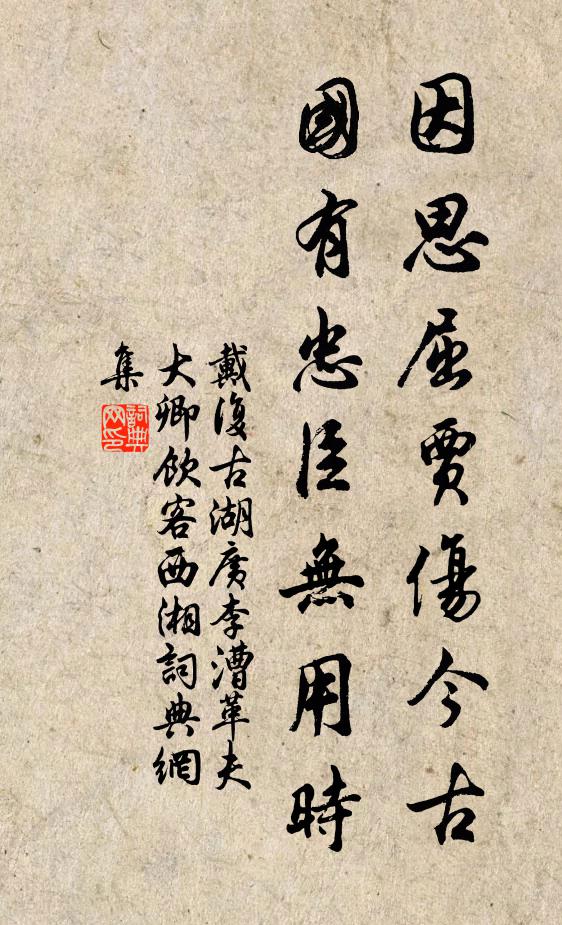 因思屈賈傷今古
國有忠臣無用時
戴復古湖廣李漕革夫
大卿飲客西湘詞典網
集
詞典網印